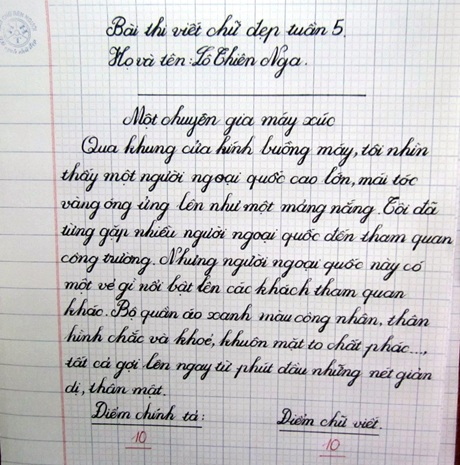 Bài thi viết chữ đẹp tuần 5.
Họ và tên: Lồ Thiên Nga.
Một chuyên gia máy xúc
Qua khung cửa kính buồng máy, tôi nhìn
thấy một người ngoại quốc cao lớn, mái tóc
vàng óng ửng lên như một mảng nắng. Tôi đã
từng gặp nhiều người ngoại quốc đến tham quan
công trường. Nhưng người ngoại quốc này có
một vẻ gì nổi bật lên các khách tham quan
khác. Bộ quần áo xanh màu công nhân, thân
hình chắc và khoẻ, khuôn mặt to chất phác...,
tất cả gợi lên ngay từ phút đầu những nét giản
dị, thân mật.
Điểm chính tả: Điểm chữ viết.
10 10